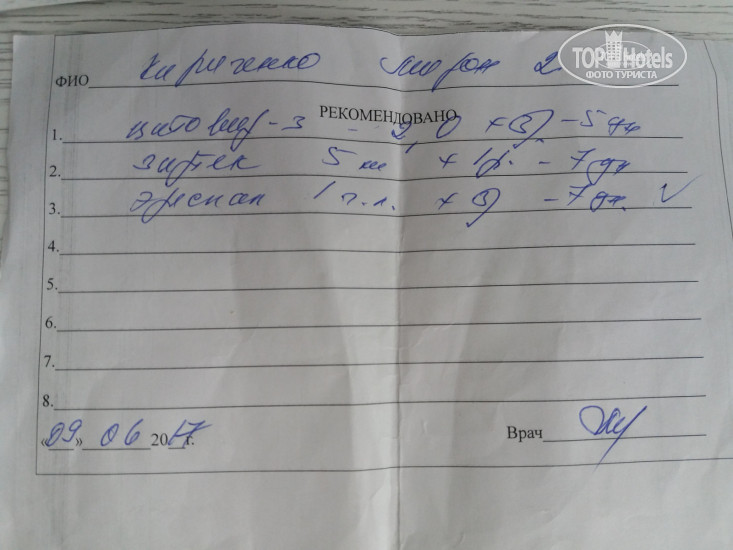 TOP Hotels
ФОТО ТУРИСТА
ФИО Кириченко Мирон 2
РЕКОМЕНДОВАНО
1. цитовир-3 - 2,0 х 3р - 5 дн
2. зиртек 5 кап х 1р. - 7 дн
3. эреспал 1 ч.л. х 3р - 7 дн. ✓
4.
5.
6.
7.
8.
«09» 06 2017г. Врач